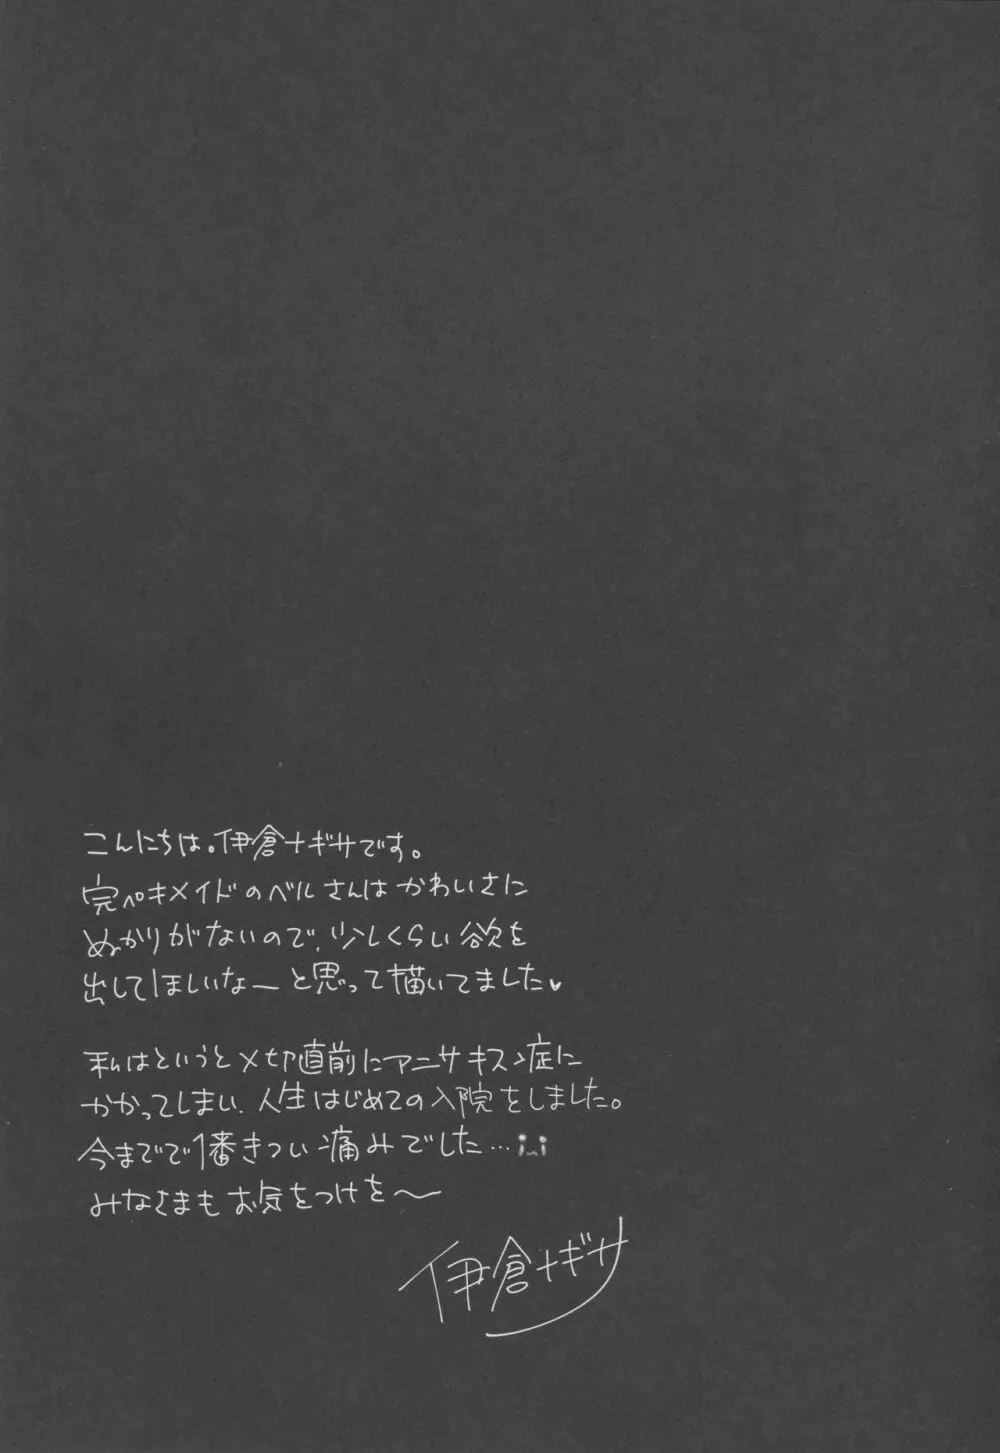 こんにちは。伊倉ナギサです。
完ペキメイドのベルさんはかわいさに
ぬかりがないので、少しくらい欲を
出してほしいなーと思って描いてました♥
私はというと〆切直前にアニサキス症に
かかってしまい、人生はじめての入院をしました。
今までで1番きつい痛みでした…
みなさまもお気をつけを〜
伊倉ナギサ